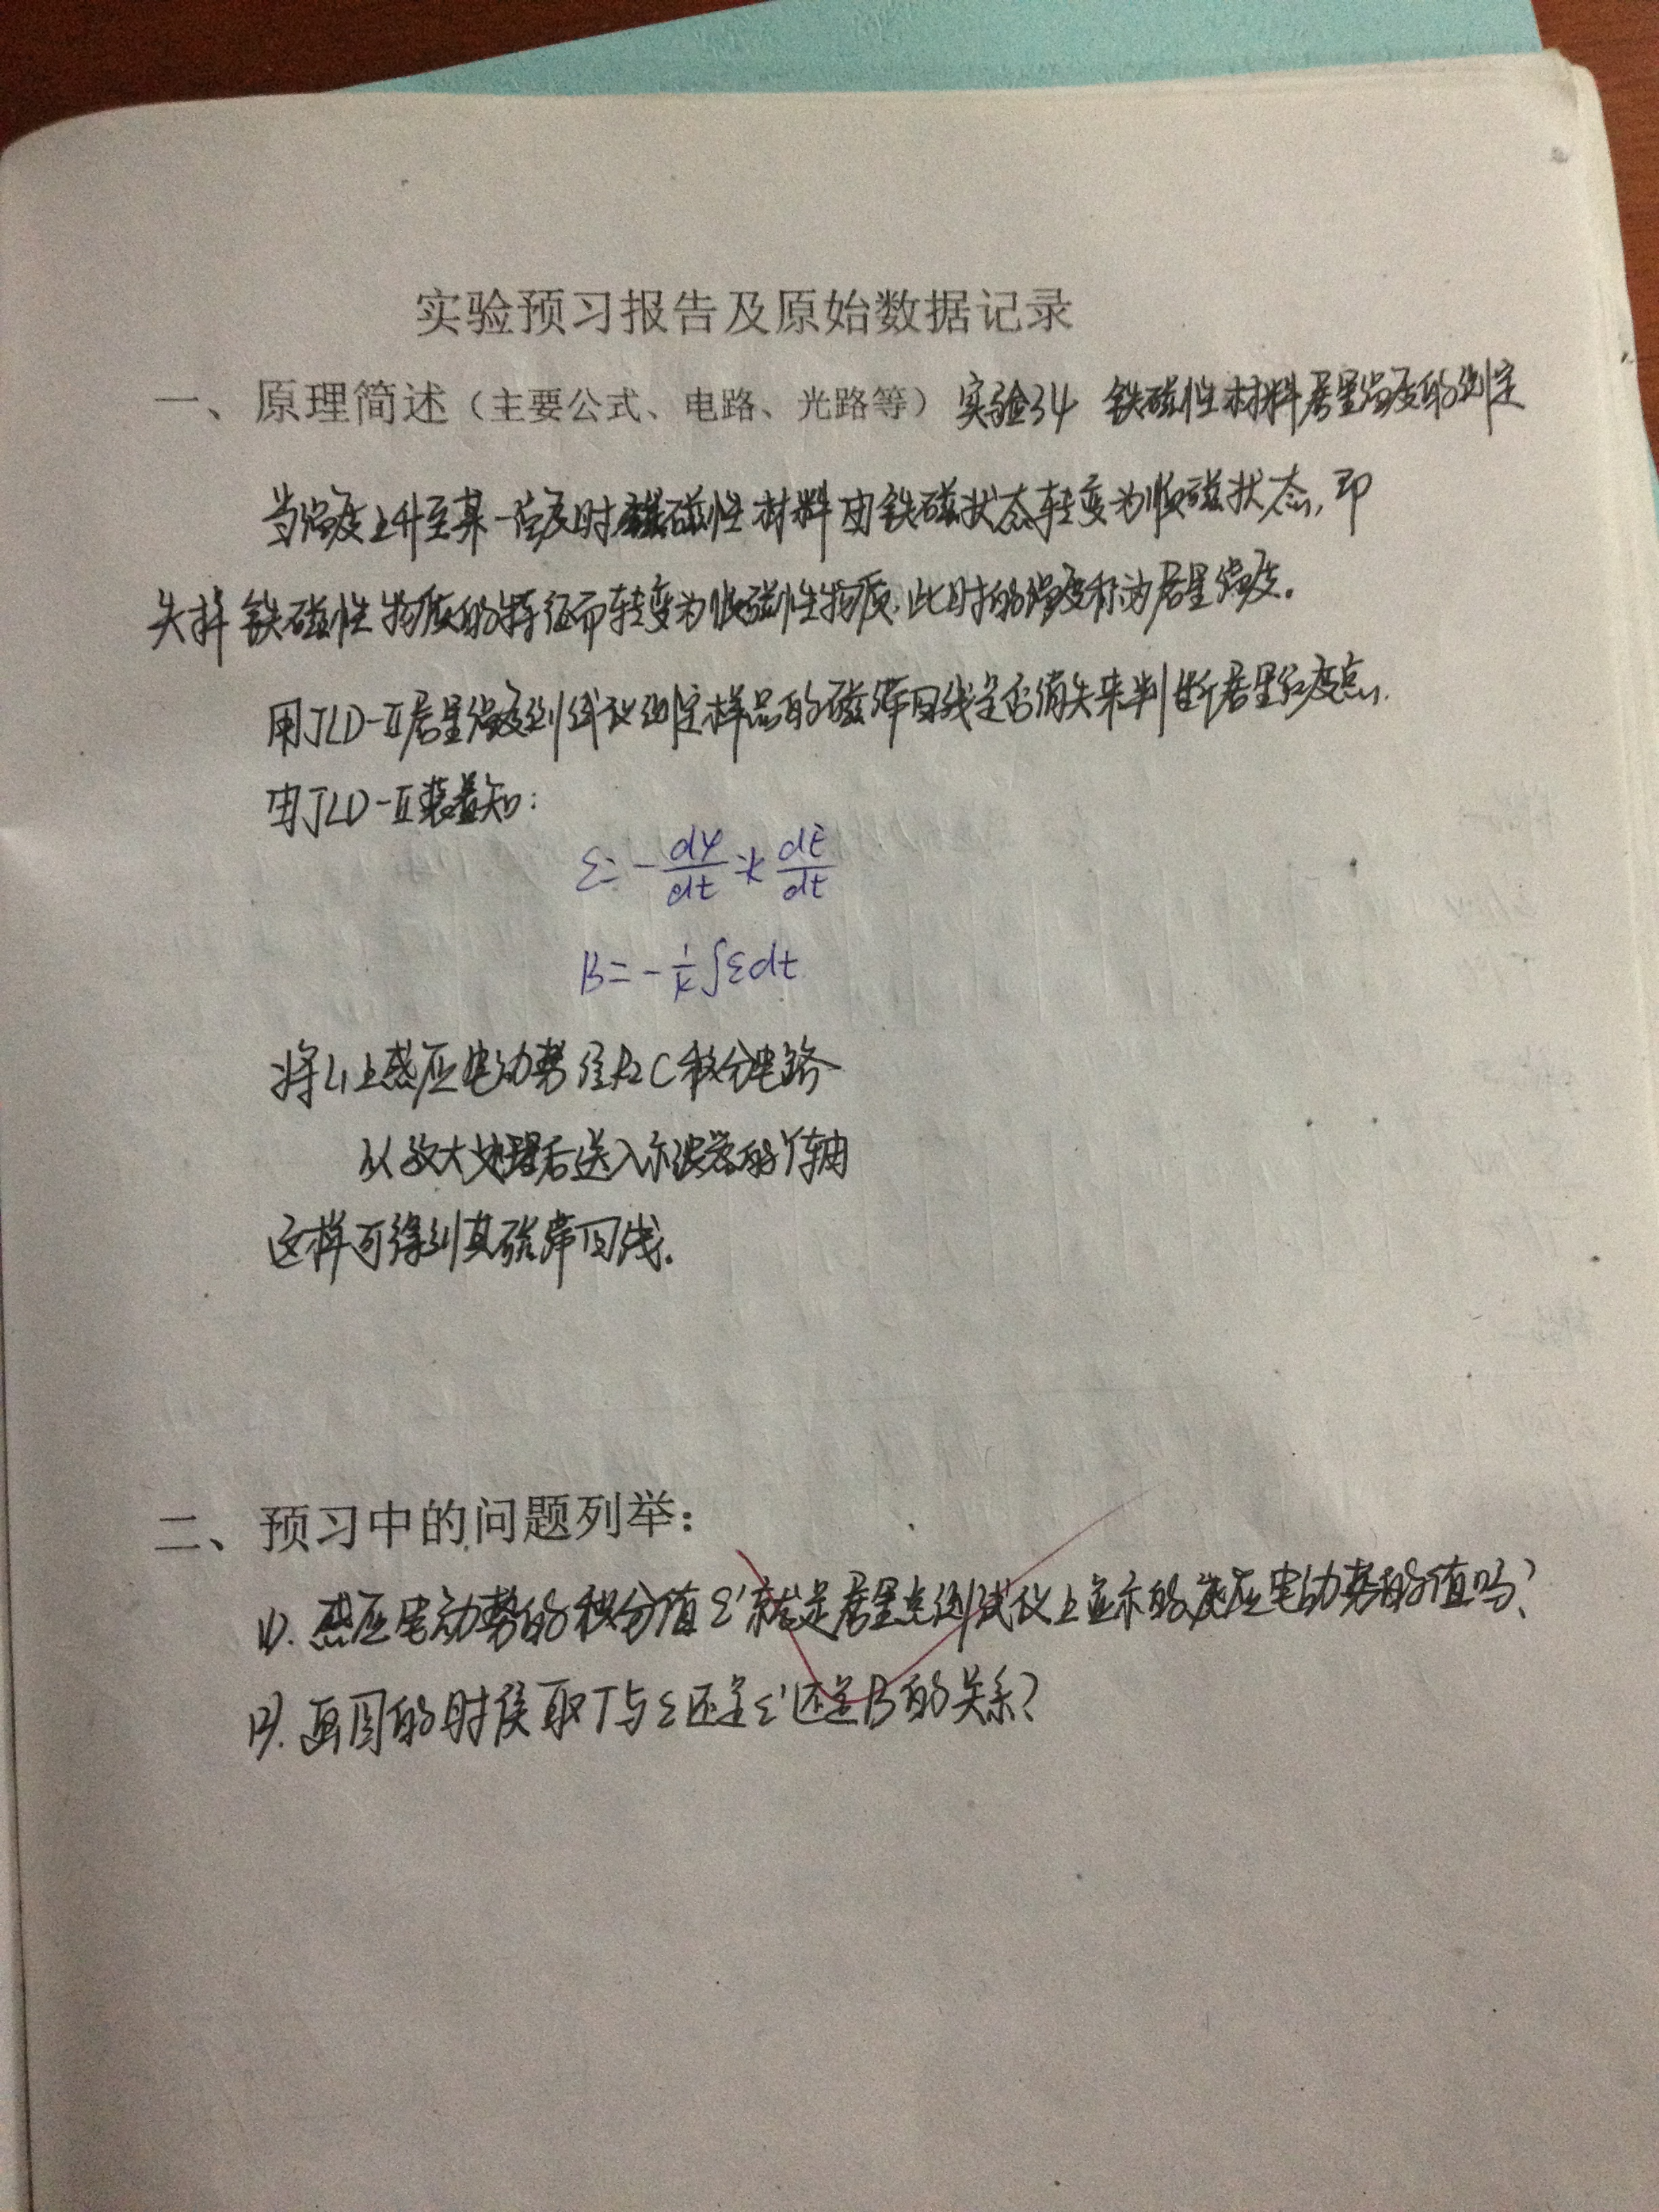 实验预习报告及原始数据记录
一、原理简述（主要公式、电路、光路等） 实验34 铁磁性材料居里温度的测定
当温度上升至某一温度时铁磁性材料由铁磁状态转变为顺磁状态，即
失掉铁磁性物质的特征而转变为顺磁性物质，此时的温度称为居里温度。
用JLD-Ⅱ居里温度测试仪测定样品的磁滞回线是否消失来判断居里温度点.
由JLD-Ⅱ装置知：
ε=-dφ/dt=k dE/dt
B=-1/k∫εdt
将L上感应电动势经R2C积分电路
从放大处理后送入示波器的Y轴
这样可得到其磁滞回线.
二、预习中的问题列举：
(1). 感应电动势的积分值ε'就是居里点测试仪上显示的感应电动势的值吗？
(2). 画图的时侯取T与ε还是ε'还是B的关系？